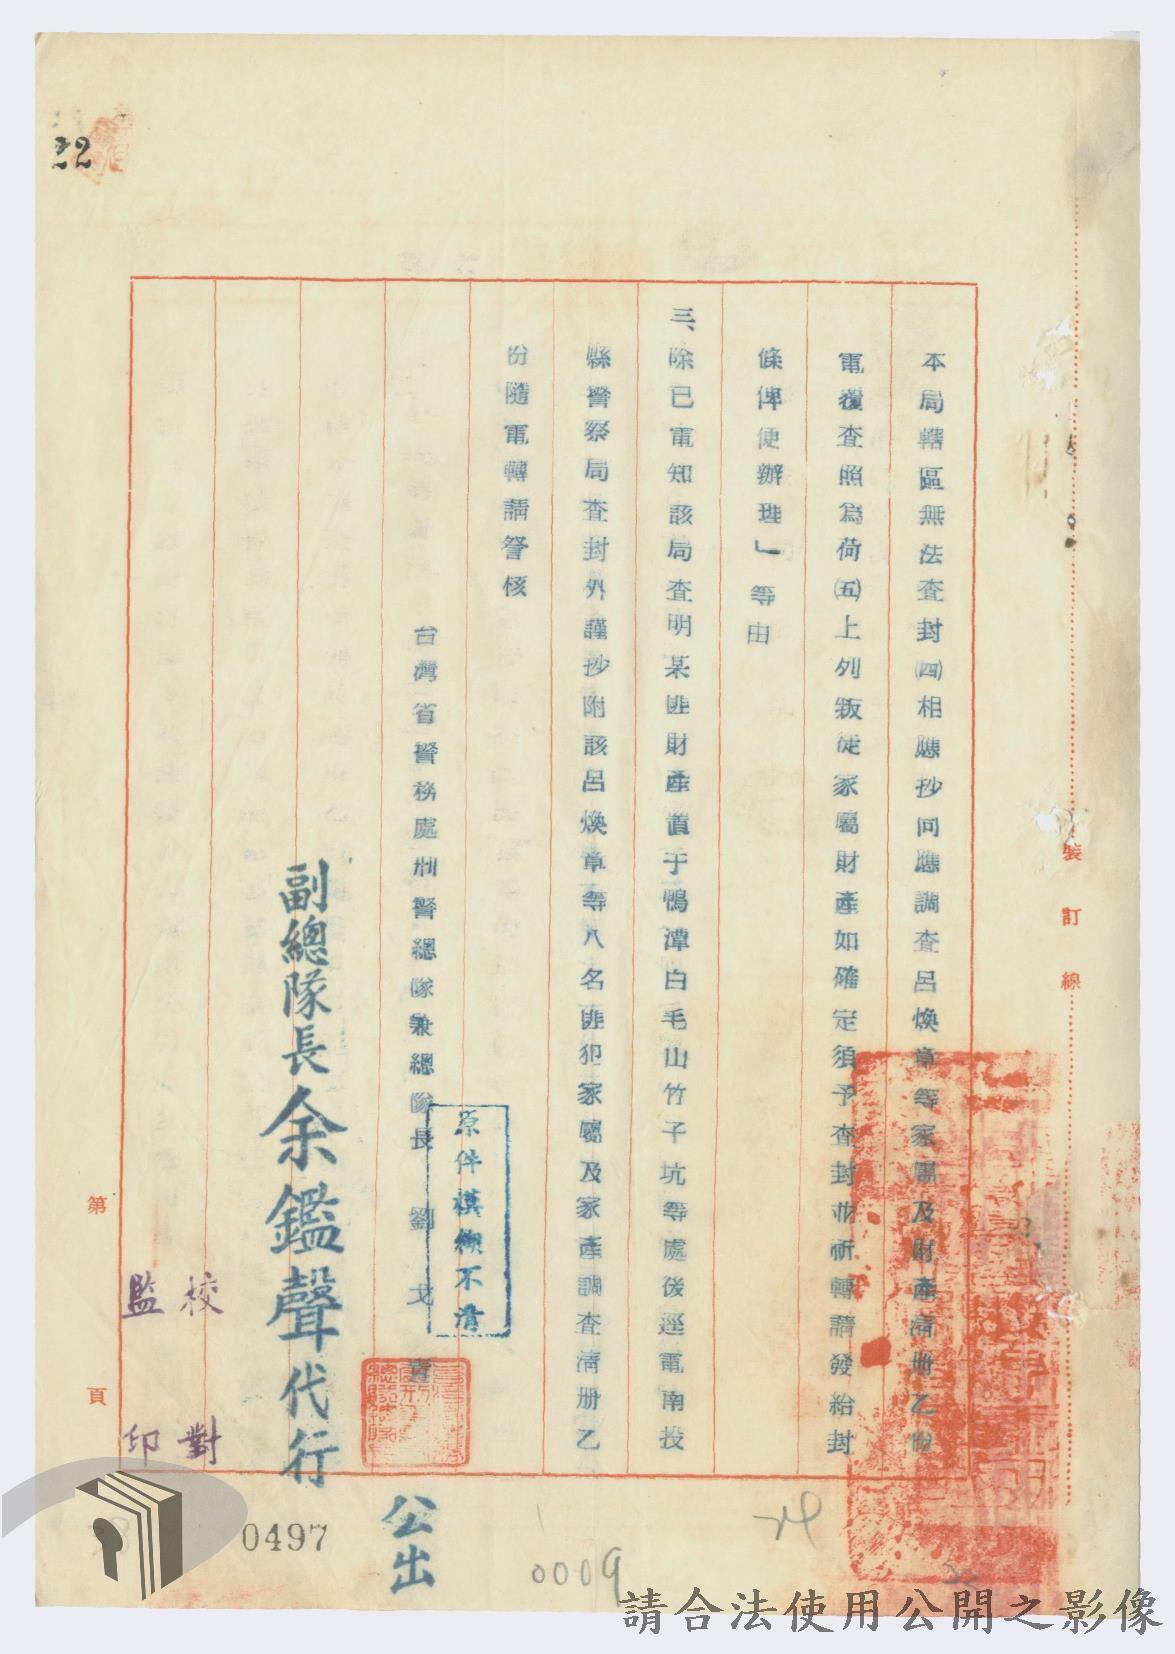 本局轄區無法查封㈣相應抄同應調查呂煥章等家屬及財產清册乙份
電覆查照爲荷㈤上列叛徒家屬財產如確定須予查封並祈轉請發給封
條俾便辦理」等由
三、除已電知該局查明某匪財產置于鴨潭白毛山竹子坑等處後逕電南投
縣警察局查封外謹抄附該呂煥章等八名匪犯家屬及家產調查清册乙
份隨電轉請詧核
台灣省警務處刑警總隊兼總隊長 劉戈青
原件模糊不清
公出
副總隊長余鑑聲代行
校對
監印
第 頁
裝訂線
22
0497
0009
請合法使用公開之影像